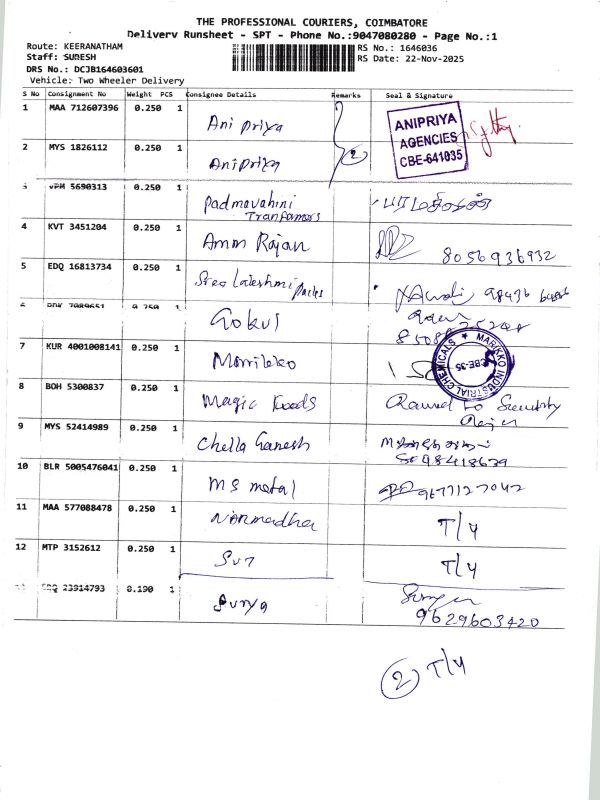 THE PROFESSIONAL COURIERS, COIMBATORE
Delivery Runsheet - SPT - Phone No.:9047080280 - Page No.:1
Route: KEERANATHAM
RS No.: 1646036
Staff: SURESH
RS Date: 22-Nov-2025
DRS No.: DCJB164603601
Vehicle: Two Wheeler Delivery
S No Consignment No Weight PCS Consignee Details Remarks Seal & Signature
1 MAA 712607396 0.250 1 Ani priya
ANIPRIYA
AGENCIES
CBE-641035
2 MYS 1826112 0.250 1 Anipriya 2
3 5690313 0.250 1 Padmavahini
4 KVT 3451204 0.250 1 Amm Rajan 8056936932
5 EDQ 16813734 0.250 1 Sree Lakshmi
6 1 Gokul
7 KUR 4001008141 0.250 1
MARIKKO INDUSTRIAL CHEMICALS
CBE-35
8 BOH 5300837 0.250 1 Magic
9 MYS 52414989 0.250 1 Chella Ganesh
10 BLR 5005476041 0.250 1 MS metal 9677127042
11 MAA 577088478 0.250 1 Narmadha T/4
12 MTP 3152612 0.250 1 Sur T/4
23914793 0.190 1 Surya
9629603420
2 T/4